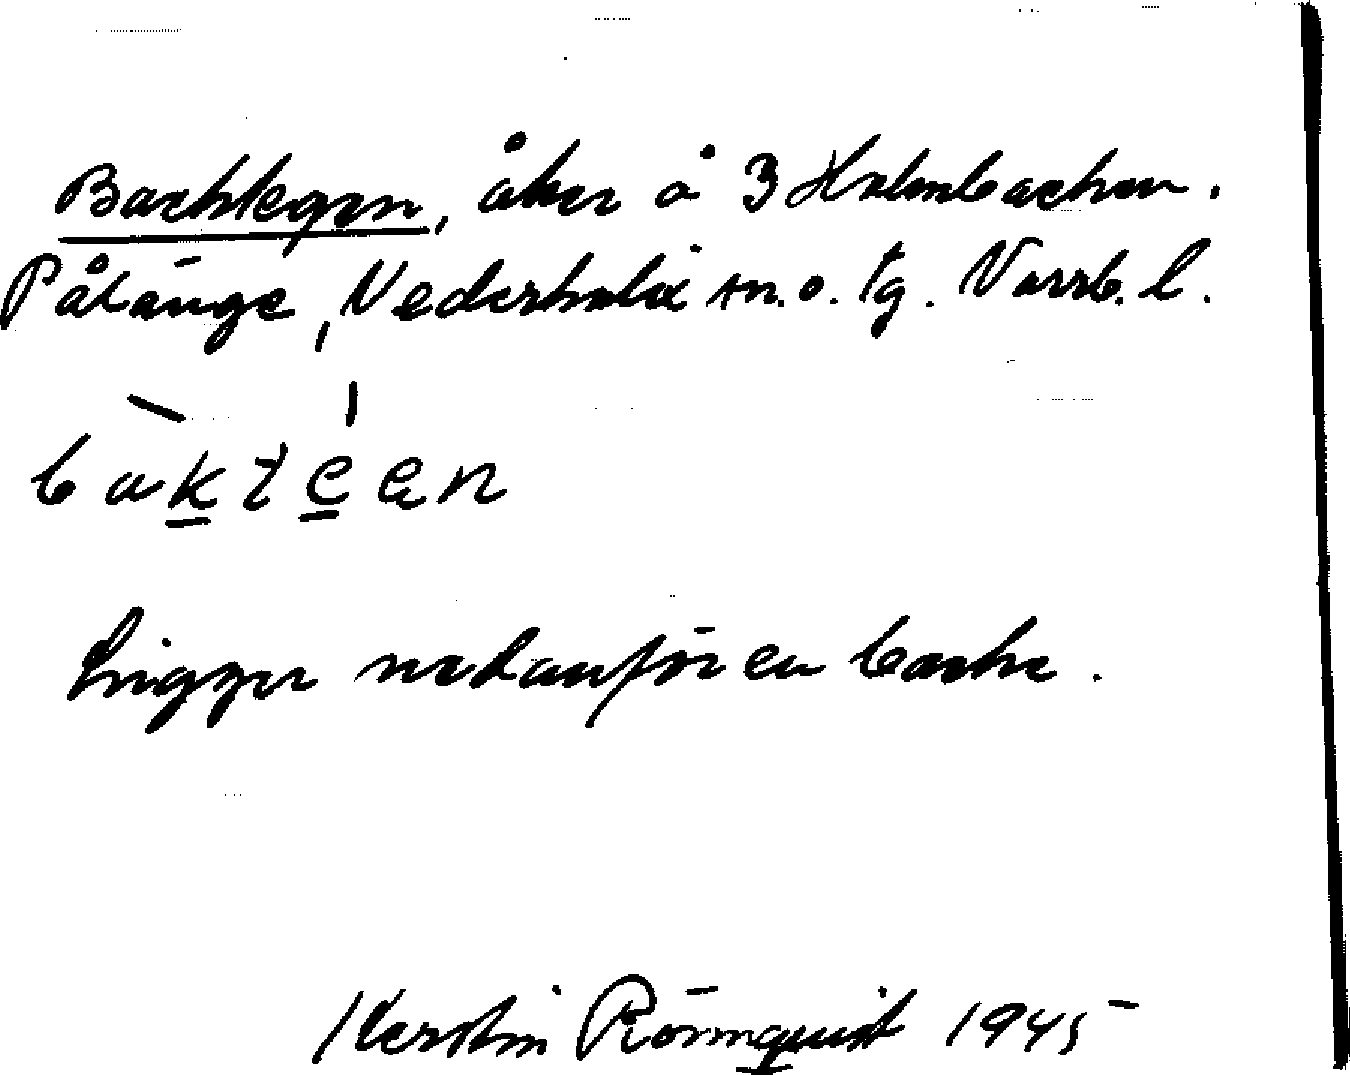 Backtegen, åker å 3 Holmbacken.
Pålänge, Nederkalix sn. o. tg. Norrb. l.
bakteen
Ligger nedanför en backe.
Kerstin Römquist 1945